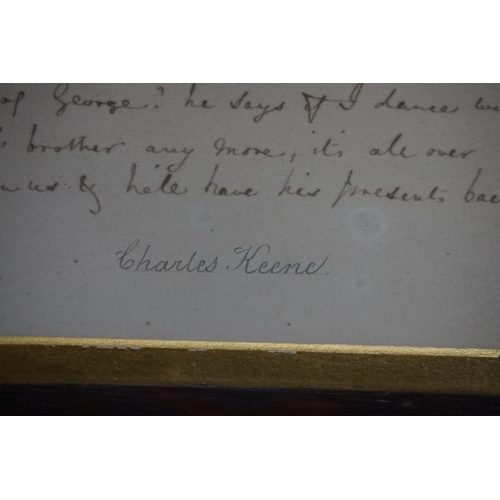 of George! he says if I dance
brother any more, it's all over
us & he'le have his presents bac
Charles Keene.